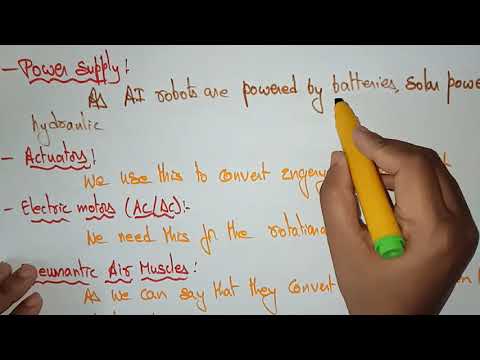 - Power Supply:
As AI robots are powered by batteries, solar powe
hydraulic
- Actuators:
We use this to convert engeny t
- Electric motors (AC/DC):-
We need this for the rotationa
neumantic Air Muscles:
As we can say that they convert